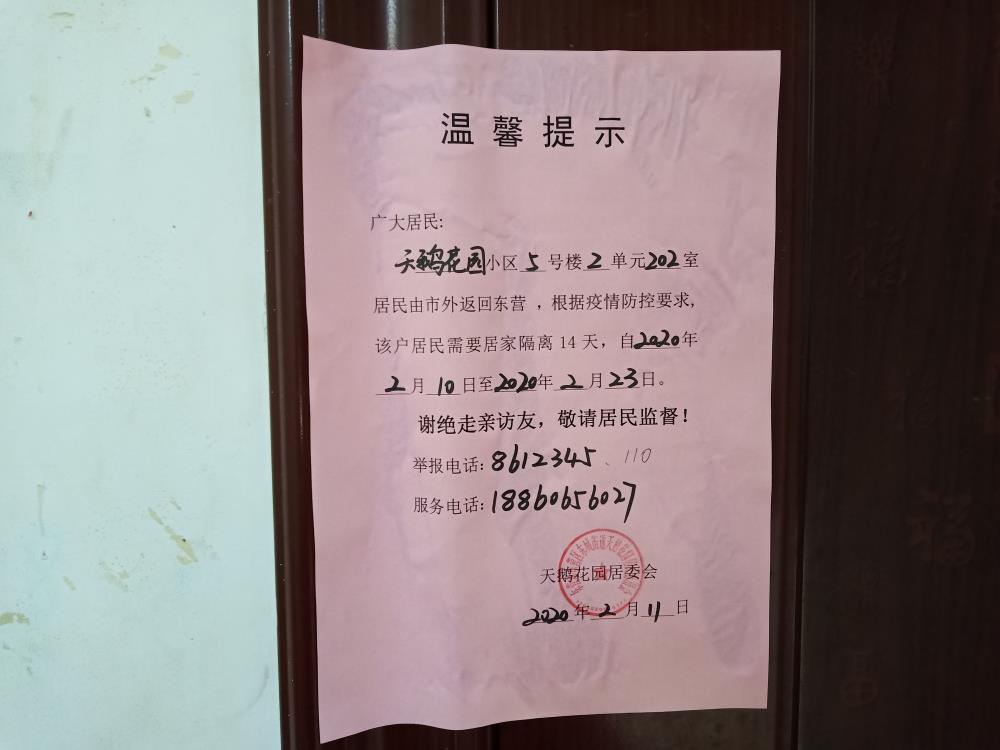 温馨提示
广大居民:
天鹅花园小区5号楼2单元202室
居民由市外返回东营，根据疫情防控要求,
该户居民需要居家隔离14天，自2020年
2月10日至2020年2月23日。
谢绝走亲访友，敬请居民监督！
举报电话: 8612345、110
服务电话: 18860656027
天鹅花园居委会
2020年2月11日
福